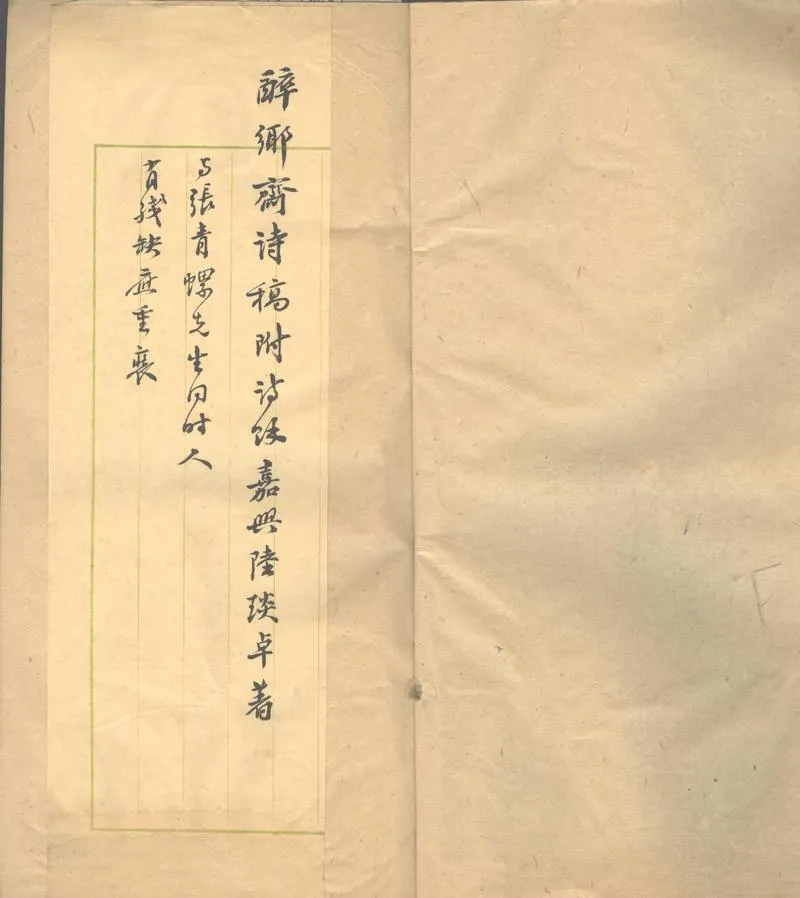 醉鄉齋詩稿附詩餘嘉興陸琰卓著
与張青螺先生同时人
有残缺應重裝